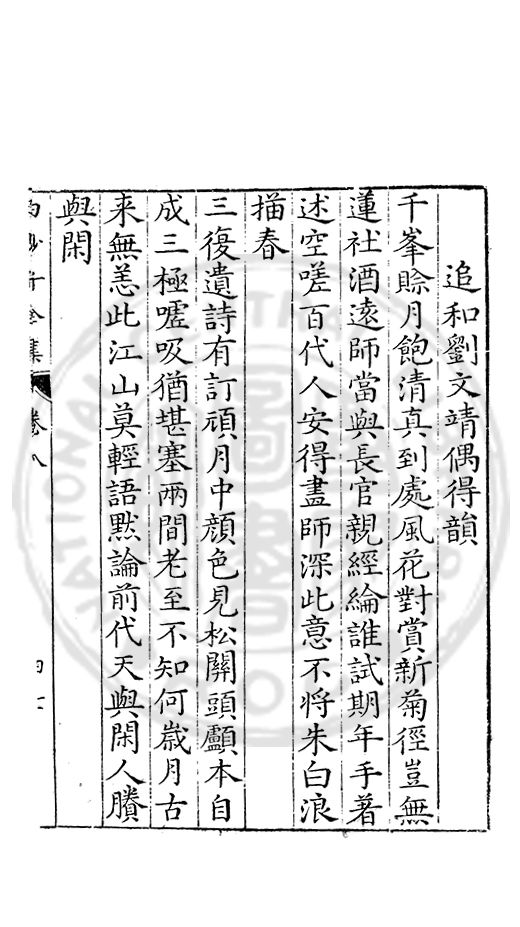 追和劉文靖偶得韻
千峯賒月飽清真到處風花對賞新菊徑豈無
蓮社酒遠師當與長官親經綸誰試期年手著
述空嗟百代人安得盡師深此意不將朱白浪
描春
三復遺詩有訂頑月中顔色見松關頭顱本自
成三極嘘吸猶堪塞兩間老至不知何嵗月古
来無恙此江山莫輕語默論前代天與閑人賸
與閑
白沙子全集 卷八